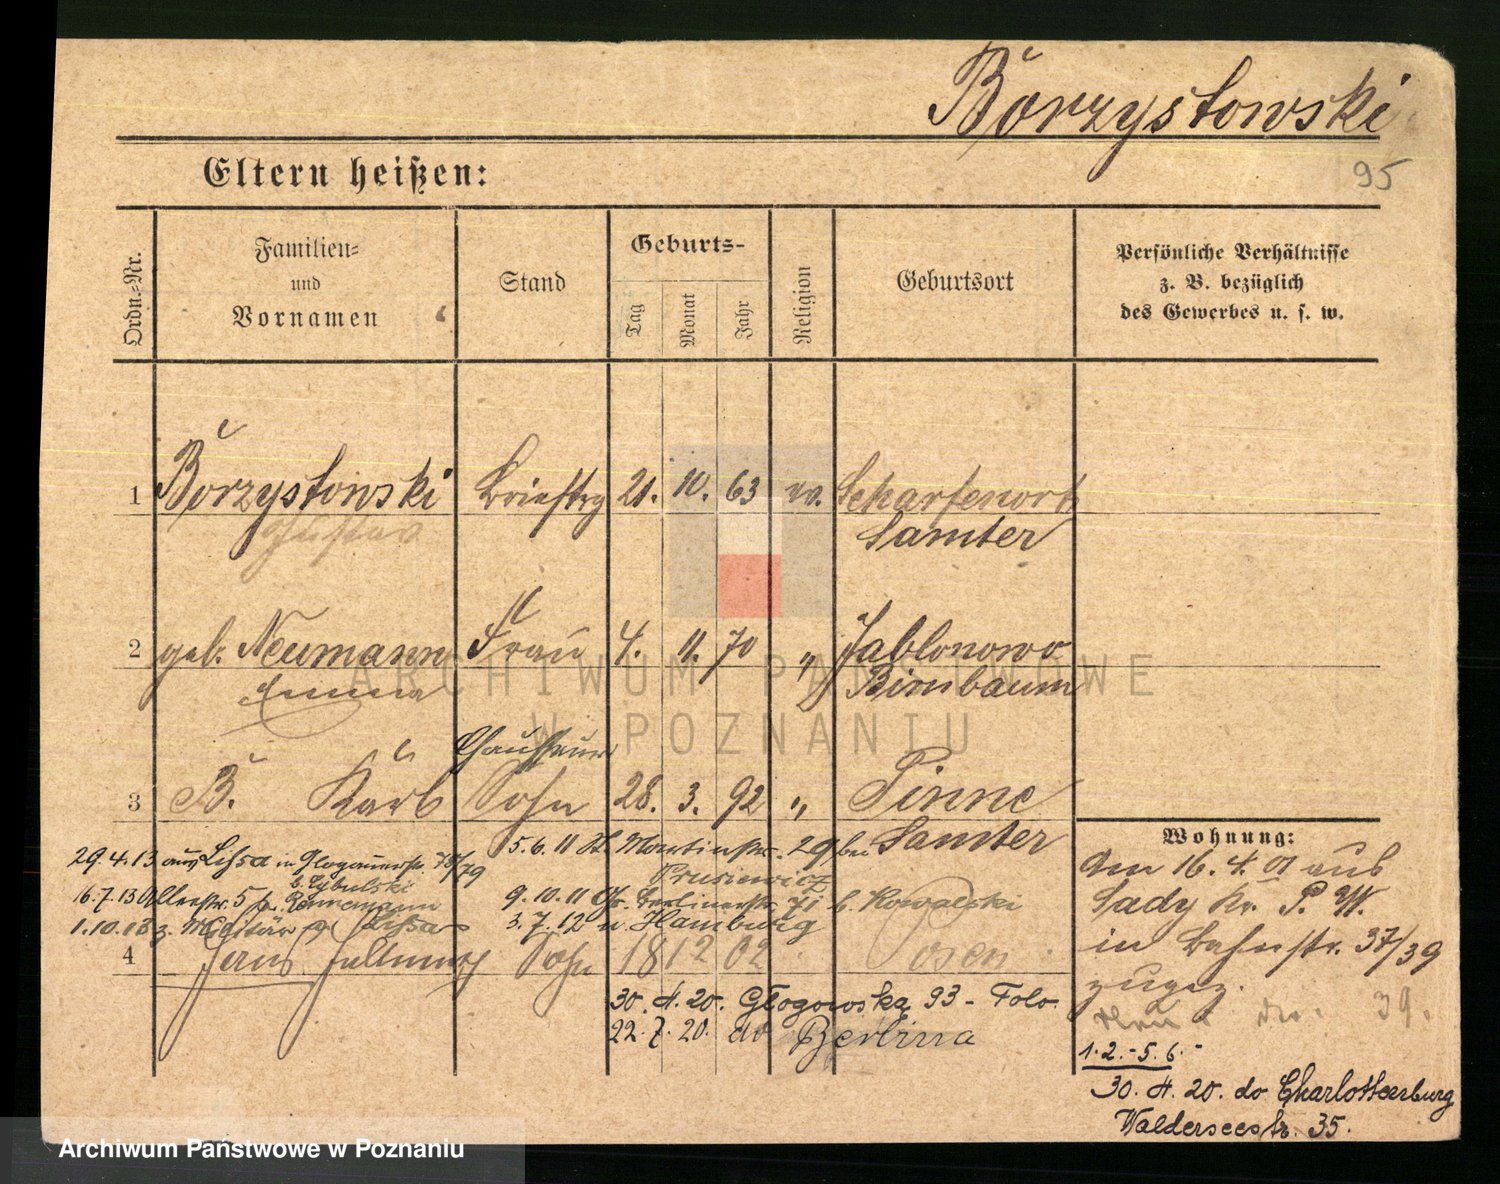 Borzystowski
95
Eltern heißen:
Ordn.-Nr.
Familien-
und
Vornamen
Stand
Geburts-
Tag
Monat
Jahr
Religion
Geburtsort
Persönliche Verhältnisse
z. B. bezüglich
des Gewerbes u. s. w.
1 Borzystowski Brieftrg 21. 10. 63 Scharfenort
Gustav Samter
2 geb. Neumann Frau 4. 11. 70 " Jablonowo
Emma Birnbaum
Chauffeur
3 B. Karl Sohn 28. 3. 92 " Pinne
Samter
5.6.11 St. Martinstr. 29 bei
Prusiewicz
29.4.13 aus Lissa in Glogauerstr. 78/79
b. Cybulski
16.7.13 5
9.10.11 Gr. Berlinerstr. 71 b. Kowalski
1.10.13 z. Militär Lissa
3.7.12 n Hamburg
4 Hans Sohn 18 12 02 Posen
30. 4. 20. Głogowska 93 - Folo.
22. 7. 20. do Berlina
Wohnung:
Am 16. 4. 01 aus
Sady Kr. P. W.
in Bahnstr. 37/39
zugez.
39.
1.2.-5.6.-
30. 4. 20. do Charlottenburg
Walderseestr. 35.
ARCHIWUM PAŃSTWOWE
W POZNANIU
Archiwum Państwowe w Poznaniu